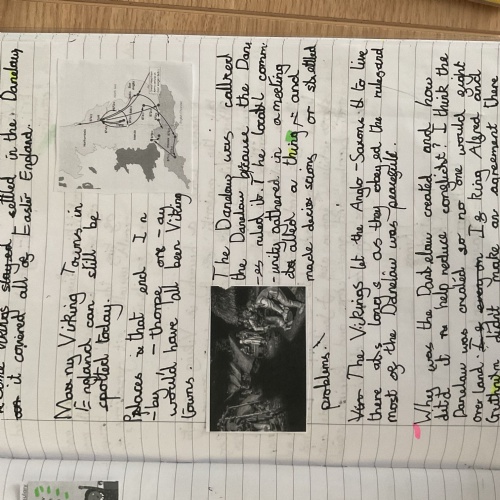 settled in the Danelaw
it covered all of Easter England.
Many Viking Towns in
England can still be
spotted today.
Places that end In
-by - thorpe or -ay
would have all been Viking
towns.
The Danelaw was called
the Danelaw because the Dan
-es ruled it. The local comm
-unity gathered in a meeting
called a thing, and
made decisions or settled
problems.
The Vikings let the Anglo-Saxons live
there as long as they obeyed the rules and
most of the Danelaw was peaceful.
Why was the Danelaw created and how
did it help reduce conflict? I think the
Danelaw was created so no one would fight
over land. If king Alfred and
Guthrum didnt make an agreement there